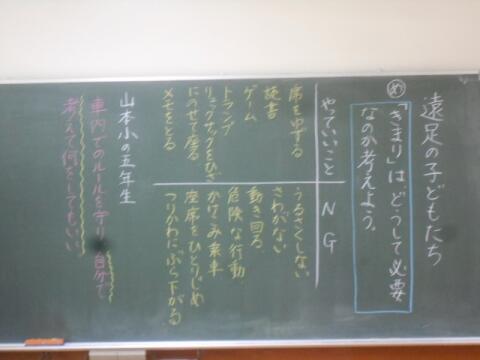 遠足の子どもたち
め
「きまり」はどうして必要
なのか考えよう。
やっていいこと
席をゆずる
読書
ゲーム
トランプ
リュックサックをひざ
にのせて座る
メモをとる
NG
うるさくしない
さわがない
動き回る
危険な行動
かけこみ乗車
座席をひとりじめ
つりかわにぶら下がる
山本小の五年生
車内でのルールを守り自分で
考えて何をしてもいい